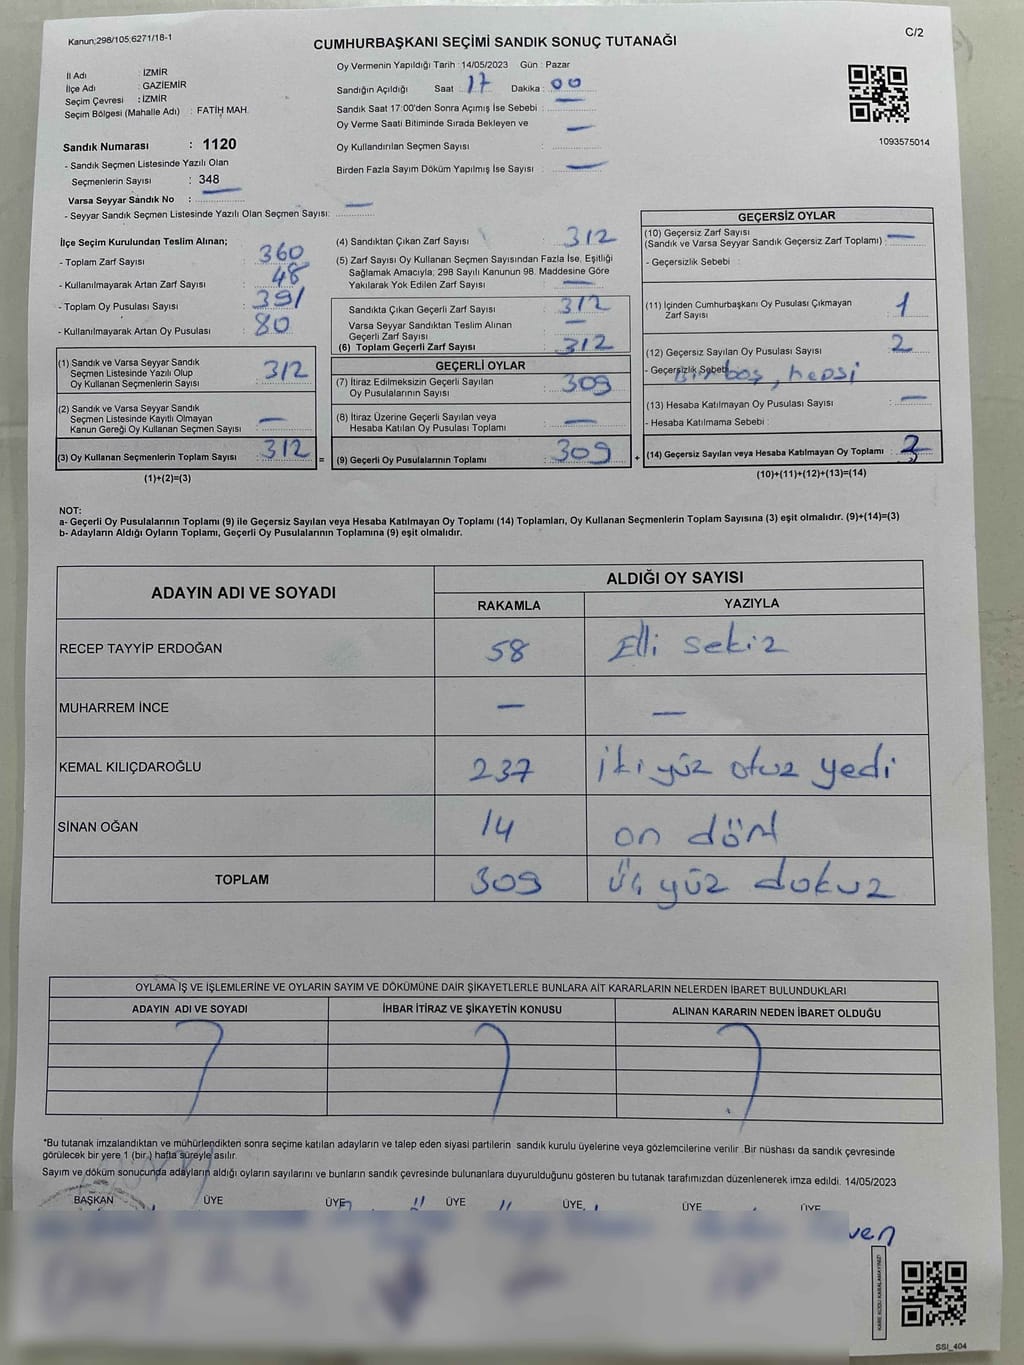 Kanun;298/105;6271/18-1
C/2
CUMHURBAŞKANI SEÇİMİ SANDIK SONUÇ TUTANAĞI
İl Adı : İZMİR
İlçe Adı : GAZİEMİR
Seçim Çevresi : İZMİR
Seçim Bölgesi (Mahalle Adı) : FATİH MAH.
Oy Vermenin Yapıldığı Tarih : 14/05/2023 Gün : Pazar
Sandığın Açıldığı Saat : 17 Dakika : 00
Sandık Saat 17:00'den Sonra Açımış İse Sebebi : —
Oy Verme Saati Bitiminde Sırada Bekleyen ve
Oy Kullandırılan Seçmen Sayısı : —
Birden Fazla Sayım Döküm Yapılmış İse Sayısı : —
1093575014
Sandık Numarası : 1120
- Sandık Seçmen Listesinde Yazılı Olan
Seçmenlerin Sayısı : 348
Varsa Seyyar Sandık No : —
- Seyyar Sandık Seçmen Listesinde Yazılı Olan Seçmen Sayısı: —
İlçe Seçim Kurulundan Teslim Alınan;
- Toplam Zarf Sayısı : 360
- Kullanılmayarak Artan Zarf Sayısı : 48
- Toplam Oy Pusulası Sayısı : 391
- Kullanılmayarak Artan Oy Pusulası : 80
(1) Sandık ve Varsa Seyyar Sandık
Seçmen Listesinde Yazılı Olup
Oy Kullanan Seçmenlerin Sayısı : 312
(2) Sandık ve Varsa Seyyar Sandık
Seçmen Listesinde Kayıtlı Olmayan
Kanun Gereği Oy Kullanan Seçmen Sayısı : —
(3) Oy Kullanan Seçmenlerin Toplam Sayısı : 312
(1)+(2)=(3)
(4) Sandıktan Çıkan Zarf Sayısı : 312
(5) Zarf Sayısı Oy Kullanan Seçmen Sayısından Fazla İse, Eşitliği
Sağlamak Amacıyla, 298 Sayılı Kanunun 98. Maddesine Göre
Yakılarak Yok Edilen Zarf Sayısı : —
Sandıkta Çıkan Geçerli Zarf Sayısı : 312
Varsa Seyyar Sandıktan Teslim Alınan
Geçerli Zarf Sayısı : —
(6) Toplam Geçerli Zarf Sayısı : 312
GEÇERLİ OYLAR
(7) İtiraz Edilmeksizin Geçerli Sayılan
Oy Pusulalarının Sayısı : 309
(8) İtiraz Üzerine Geçerli Sayılan veya
Hesaba Katılan Oy Pusulası Toplamı : —
= (9) Geçerli Oy Pusulalarının Toplamı : 309 +
GEÇERSİZ OYLAR
(10) Geçersiz Zarf Sayısı
(Sandık ve Varsa Seyyar Sandık Geçersiz Zarf Toplamı) : —
- Geçersizlik Sebebi :
(11) İçinden Cumhurbaşkanı Oy Pusulası Çıkmayan
Zarf Sayısı : 1
(12) Geçersiz Sayılan Oy Pusulası Sayısı : 2
- Geçersizlik Sebebi Biri boş, hepsi
(13) Hesaba Katılmayan Oy Pusulası Sayısı : —
- Hesaba Katılmama Sebebi :
(14) Geçersiz Sayılan veya Hesaba Katılmayan Oy Toplamı : 3
(10)+(11)+(12)+(13)=(14)
NOT:
a- Geçerli Oy Pusulalarının Toplamı (9) ile Geçersiz Sayılan veya Hesaba Katılmayan Oy Toplamı (14) Toplamları, Oy Kullanan Seçmenlerin Toplam Sayısına (3) eşit olmalıdır. (9)+(14)=(3)
b- Adayların Aldığı Oyların Toplamı, Geçerli Oy Pusulalarının Toplamına (9) eşit olmalıdır.
ADAYIN ADI VE SOYADI ALDIĞI OY SAYISI
RAKAMLA YAZIYLA
RECEP TAYYİP ERDOĞAN 58 Elli sekiz
MUHARREM İNCE — —
KEMAL KILIÇDAROĞLU 237 iki yüz otuz yedi
SİNAN OĞAN 14 on dört
TOPLAM 309 üç yüz dokuz
OYLAMA İŞ VE İŞLEMLERİNE VE OYLARIN SAYIM VE DÖKÜMÜNE DAİR ŞİKAYETLERLE BUNLARA AİT KARARLARIN NELERDEN İBARET BULUNDUKLARI
ADAYIN ADI VE SOYADI İHBAR İTİRAZ VE ŞİKAYETİN KONUSU ALINAN KARARIN NEDEN İBARET OLDUĞU
*Bu tutanak imzalandıktan ve mühürlendikten sonra seçime katılan adayların ve talep eden siyasi partilerin sandık kurulu üyelerine veya gözlemcilerine verilir. Bir nüshası da sandık çevresinde
görülecek bir yere 1 (bir) hafta süreyle asılır.
Sayım ve döküm sonucunda adayların aldığı oyların sayılarını ve bunların sandık çevresinde bulunanlara duyurulduğunu gösteren bu tutanak tarafımızdan düzenlenerek imza edildi. 14/05/2023
BAŞKAN ÜYE ÜYE ÜYE ÜYE ÜYE ÜYE
KARE KODU KARALAMAYINIZ!
SSI_404